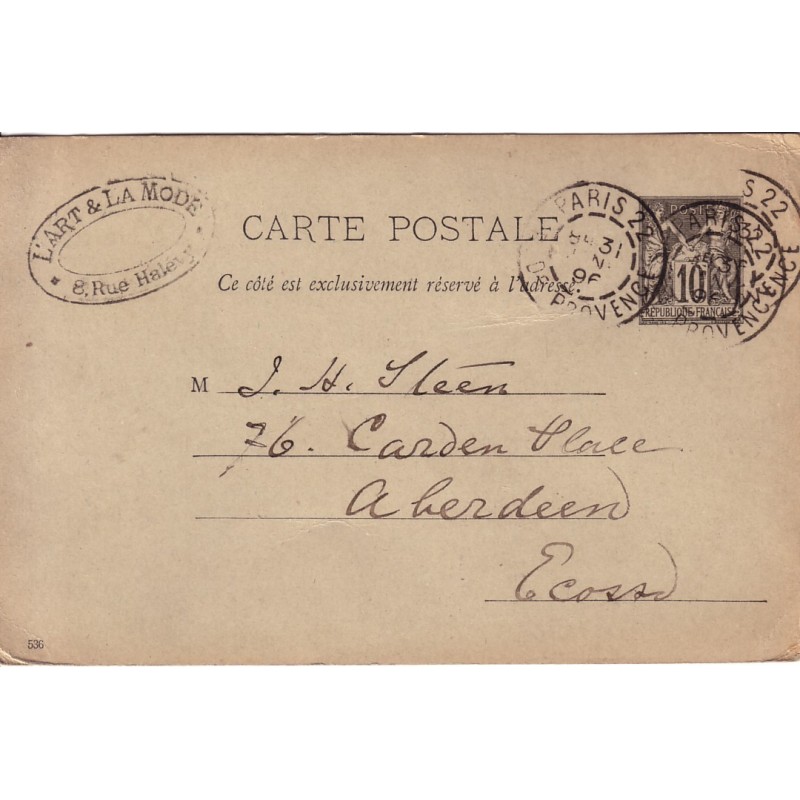 L'ART & LA MODE
8, Rue Halévy
CARTE POSTALE
Ce côté est exclusivement réservé à l'adresse.
PARIS 22
31
96
DE PROVENCE
PARIS 22
PROVENCE
POSTES
10
RÉPUBLIQUE FRANÇAISE
M J. H. Steen
76. Carden Place
Aberdeen
Ecosse
536